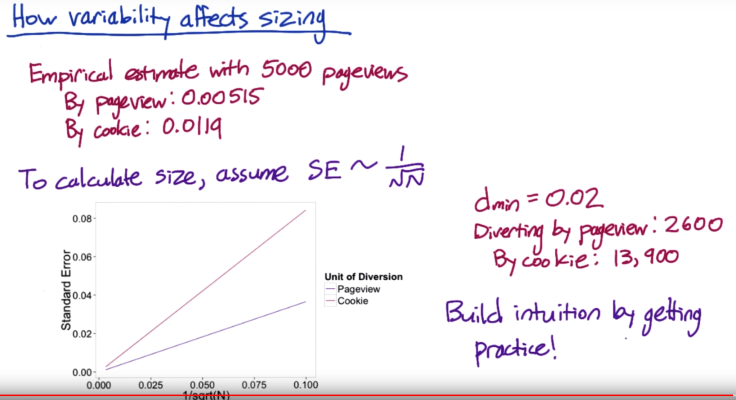 How variability affects sizing
Empirical estimate with 5000 pageviews
By pageview: 0.00515
By cookie: 0.0119
To calculate size, assume SE ~ 1/√N
0.08
0.06
0.04
0.02
0.00
Standard Error
0.000 0.025 0.050 0.075 0.100
1/sqrt(N)
Unit of Diversion
Pageview
Cookie
dmin = 0.02
Diverting by pageview: 2600
By cookie: 13,900
Build intuition by getting
practice!